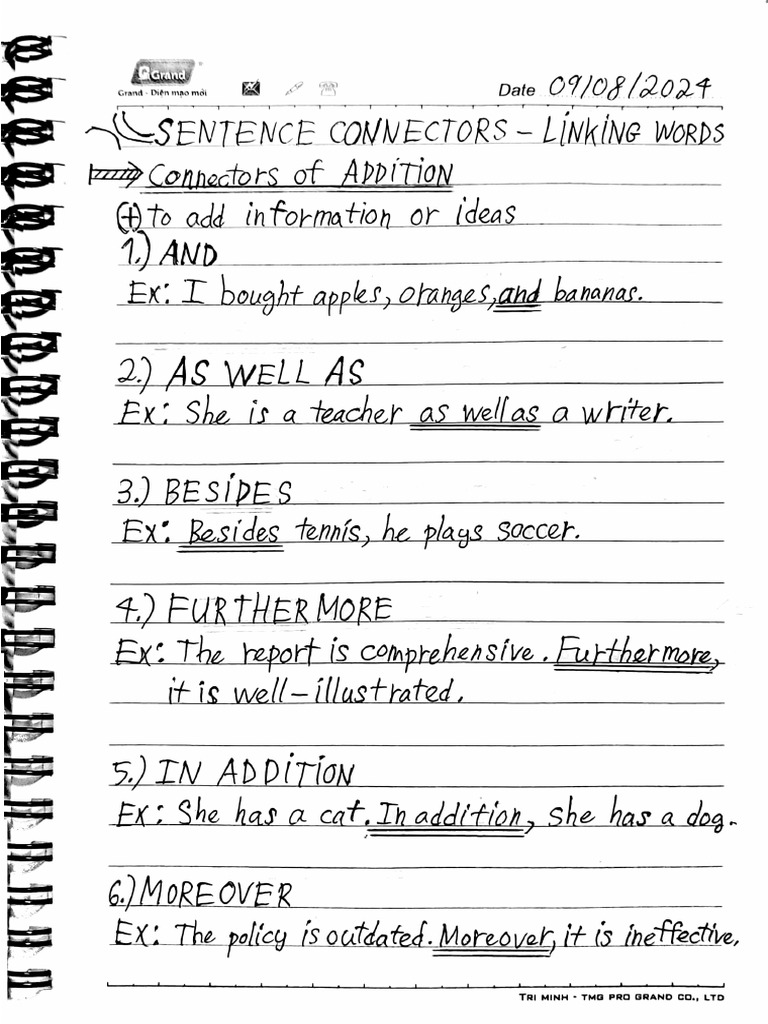 Grand
Grand - Diện mạo mới
Date 09/08/2024
SENTENCE CONNECTORS - LINKING WORDS
Connectors of ADDITION
(+) to add information or ideas
1.) AND
Ex: I bought apples, oranges, and bananas.
2.) AS WELL AS
Ex: She is a teacher as well as a writer.
3.) BESIDES
Ex: Besides tennis, he plays soccer.
4.) FURTHERMORE
Ex: The report is comprehensive. Furthermore,
it is well-illustrated.
5.) IN ADDITION
Ex: She has a cat. In addition, she has a dog.
6.) MOREOVER
Ex: The policy is outdated. Moreover, it is ineffective.
TRI MINH - TMG PRO GRAND CO., LTD